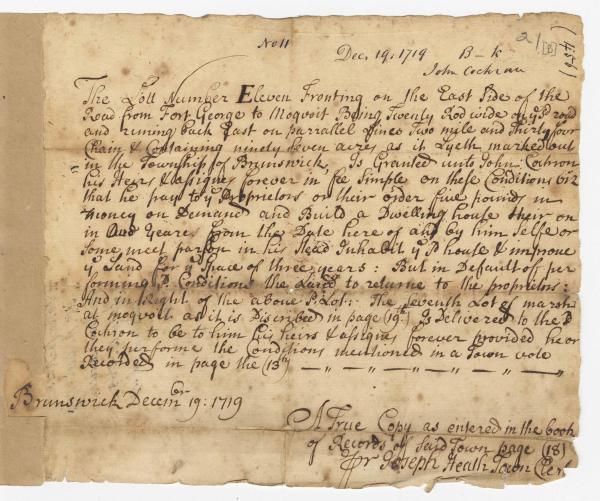 No 11
Dec. 19. 1719 B-k
John Cochran
The Lott Number Eleven Fronting on the East Side of the
Road from Fort George to Moqvoit Being Twenty Rod wide of yͤ sᵈ road
and runing back East on parrallel Lines Two mile and thirty four
Chain & Containing ninety seven acres as it Lyeth marked out
in the Township of Brunswick, Is Granted unto John Cochron
his Heirs & assignes forever in fee Simple on these Conditions viz
that he pay to yͤ Proprietors or their order five pounds in
money on Demand and Build a Dwelling house their on
in Two Yeares from the Date here of and by him Selfe or
Some meet parson in his Stead Inhabit yͤ sᵈ house & improve
yͤ Land for yͤ Space of three years: But in Default of per
forming sᵈ Conditions the Land to returne to the proprietors:
And in Right of the above sᵈ Lot: The Seventh Lot of marsh
at moqvoit as it is Discribed in page (19ᵗʰ) Is Delivered to the sᵈ
Cochron to be to him his heirs & assignes forever provided he or
they performe the Conditions mentioned in a Town vote
Recorded in page the (13ᵗʰ)
Brunswick Decembʳ 19: 1719
A True Copy as entered in the book
of Records of Said Town page (18)
Pr Joseph Heath Town Cler